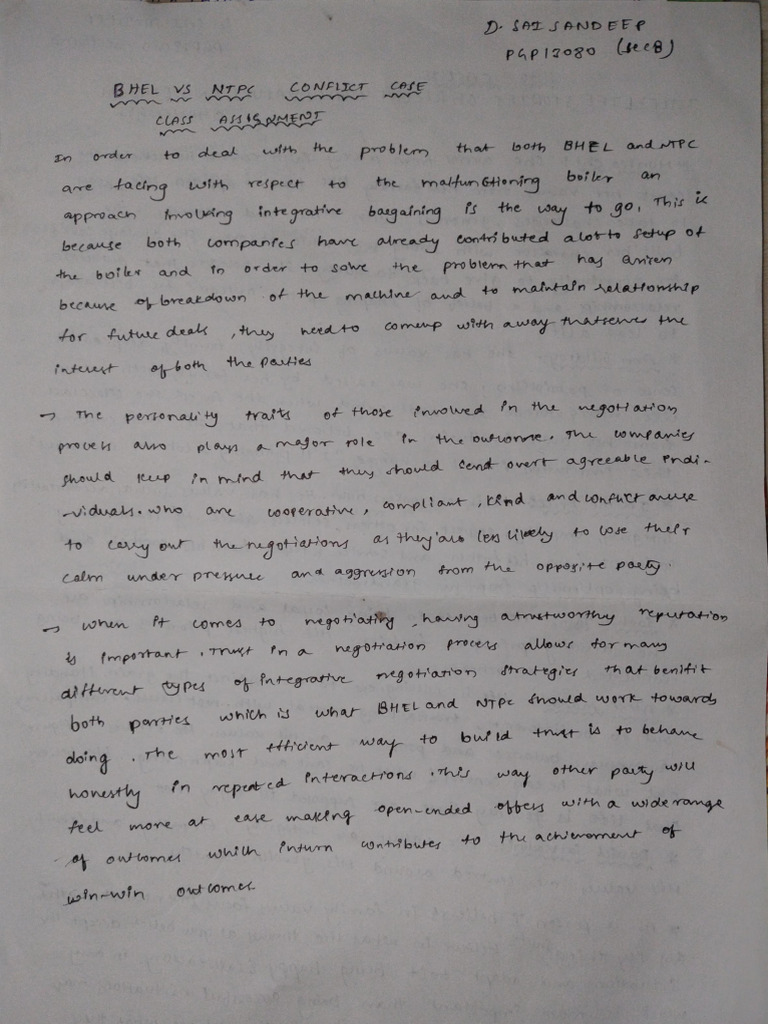 D. SAI SANDEEP
PGP13080 (sec B)
BHEL VS NTPC CONFLICT CASE
CLASS ASSIGNMENT
In order to deal with the problem that both BHEL and NTPC
are facing with respect to the malfunctioning boiler an
approach involving integrative bargaining is the way to go. This is
because both companies have already contributed a lot to setup of
the boiler and in order to solve the problem that has arisen
because of breakdown of the machine and to maintain relationship
for future deals, they need to comeup with a way that serves the
interest of both the parties
→ The personality traits of those involved in the negotiation
process also plays a major role in the outcome. The companies
should keep in mind that they should send overt agreeable indi-
-viduals. who are cooperative, compliant, kind and conflict averse
to carry out the negotiations as they are less likely to lose their
calm under pressure and aggression from the opposite party.
→ When it comes to negotiating, having a trustworthy reputation
is important. Trust in a negotiation process allows for many
different types of integrative negotiation strategies that benifit
both parties which is what BHEL and NTPC should work towards
doing. The most efficient way to build trust is to behave
honestly in repeated interactions. This way other party will
feel more at ease making open-ended offers with a wide range
of outcomes which inturn contributes to the achievement of
win-win outcomes